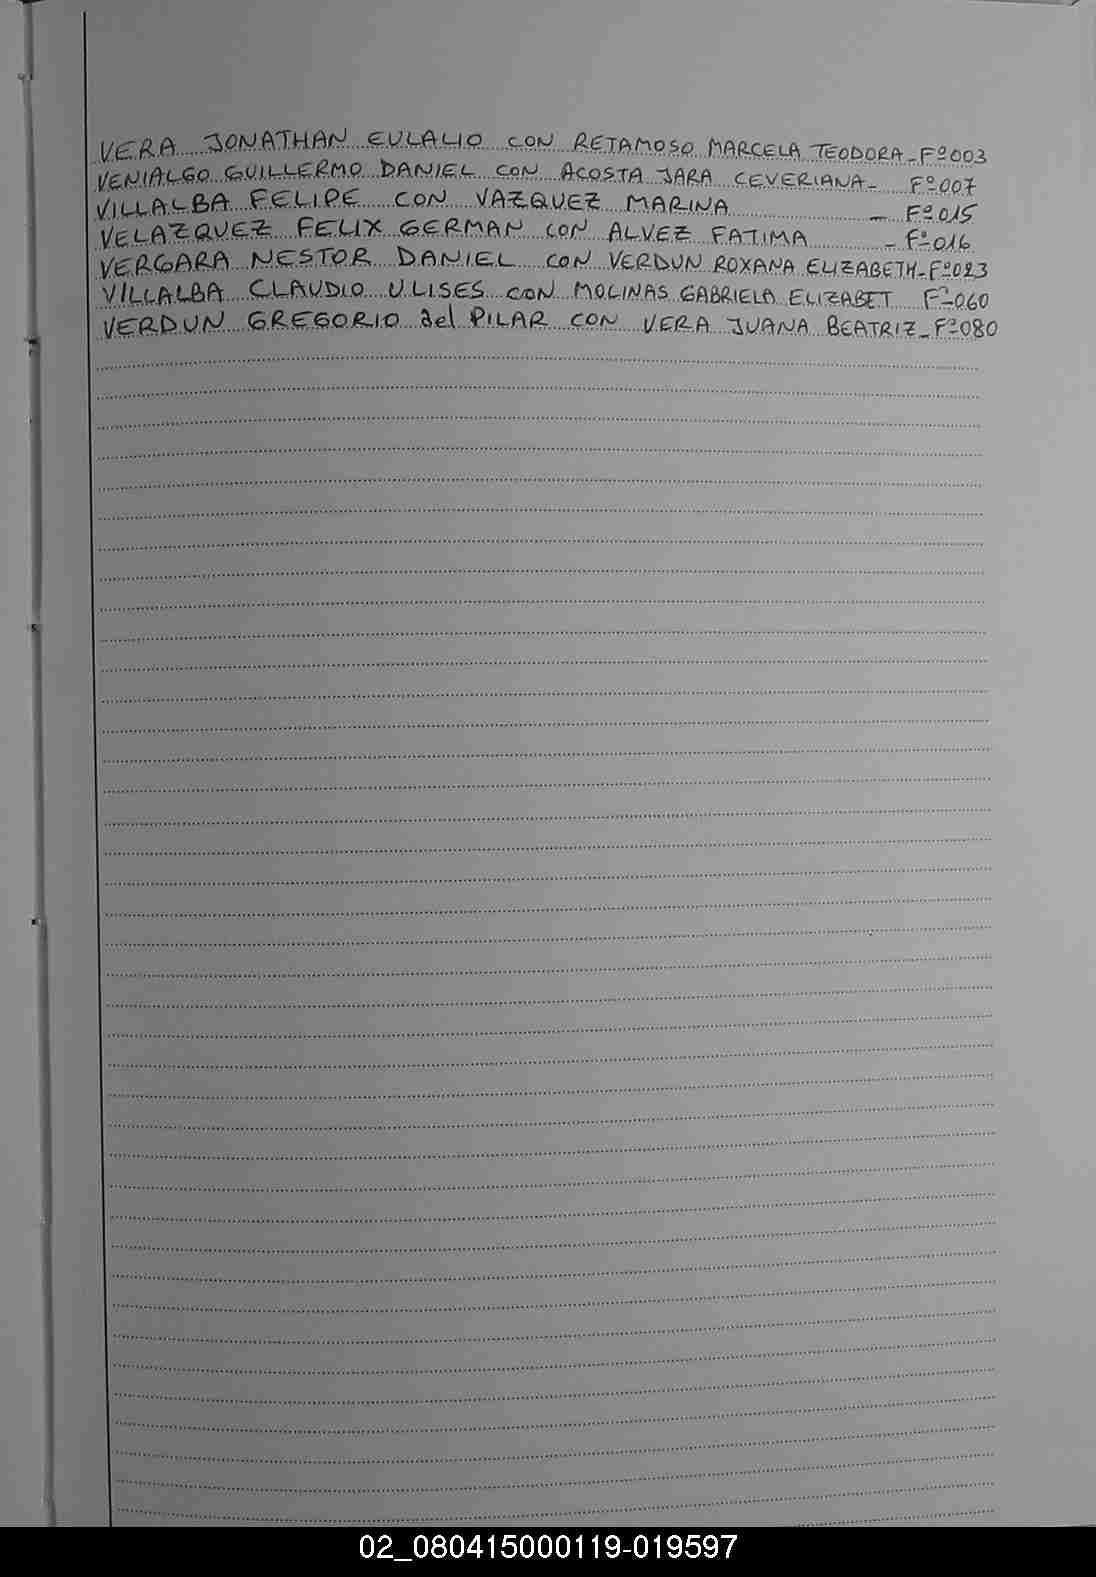 VERA JONATHAN EULALIO CON RETAMOSO MARCELA TEODORA - Fº 003
VENIALGO GUILLERMO DANIEL CON ACOSTA JARA CEVERIANA - Fº 007
VILLALBA FELIPE CON VAZQUEZ MARINA - Fº 015
VELAZQUEZ FELIX GERMAN CON ALVEZ FATIMA - Fº 016
VERGARA NESTOR DANIEL CON VERDUN ROXANA ELIZABETH - Fº 023
VILLALBA CLAUDIO ULISES CON MOLINAS GABRIELA ELIZABET Fº 060
VERDUN GREGORIO del PILAR CON VERA JUANA BEATRIZ - Fº 080
02_080415000119-019597